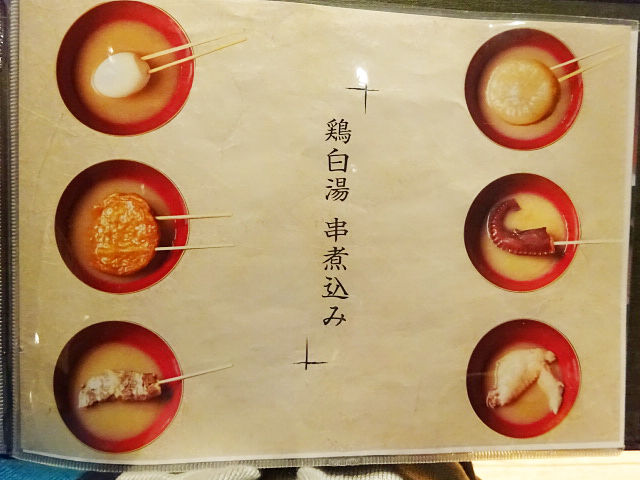 鶏白湯 串煮込み